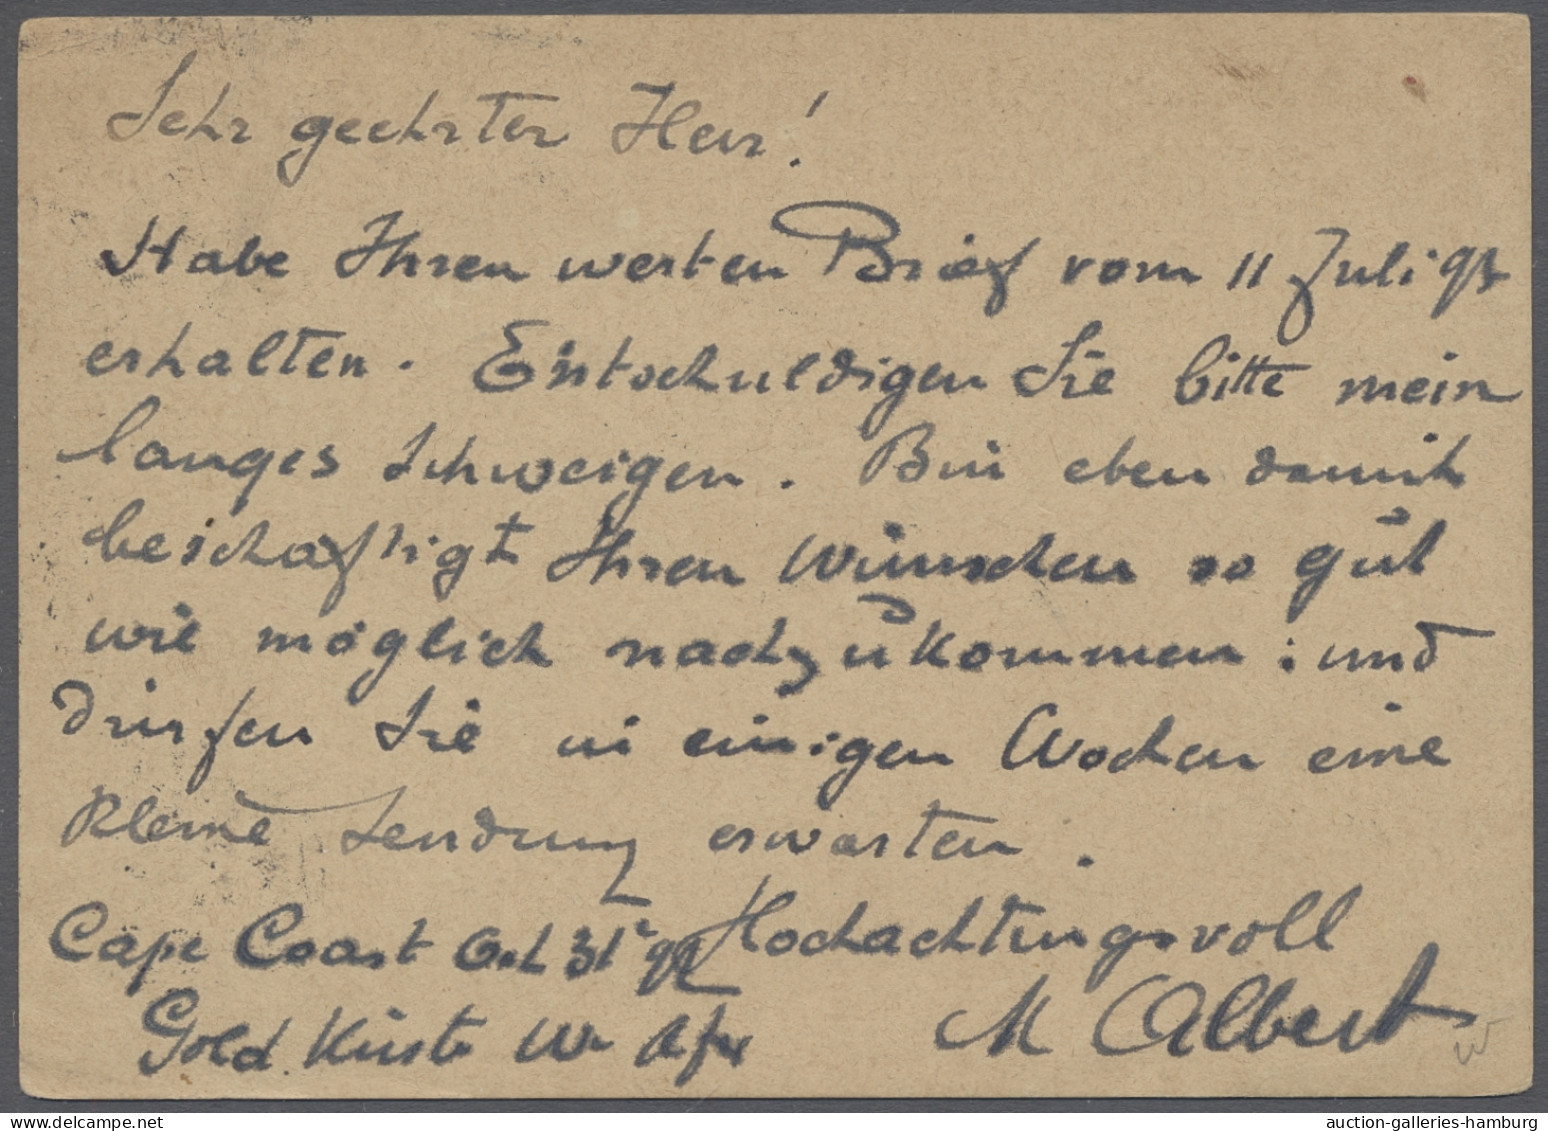 Sehr geehrter Herr!
Habe Ihren werten Brief vom 11 Juli 98
erhalten. Entschuldigen Sie bitte mein
langes Schweigen. Bin eben damit
beschaftigt Ihren Wünschen so gut
wie möglich nachzukommen: und
dürfen Sie in einigen Wochen eine
kleine Sendung erwarten.
Hochachtungsvoll
Cape Coast Oct 31t
M Albert
Gold. Küste W. Afr
auction-galleries-hamburg